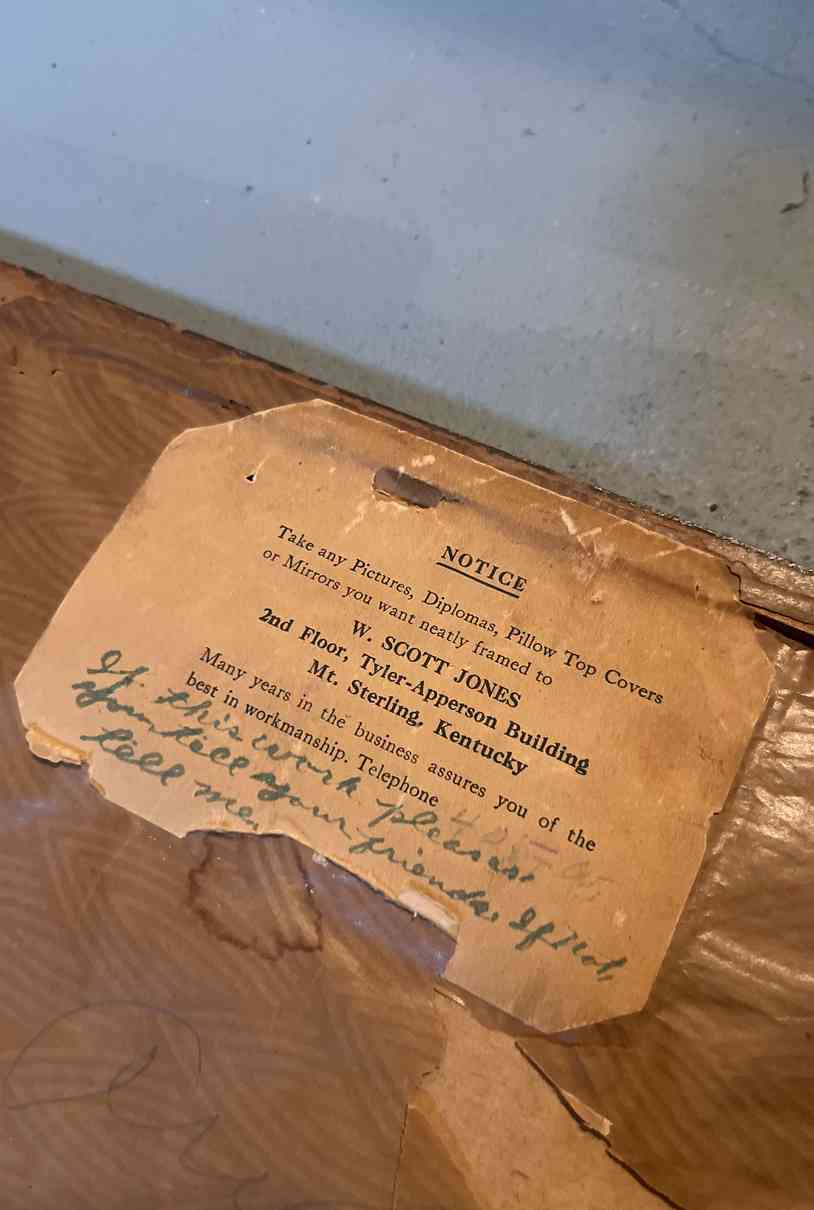 NOTICE
Take any Pictures, Diplomas, Pillow Top Covers
or Mirrors you want neatly framed to
W. SCOTT JONES
2nd Floor, Tyler-Apperson Building
Mt. Sterling, Kentucky
Many years in the business assures you of the
best in workmanship. Telephone
If this work pleases
you tell your friends. If Not,
tell me.